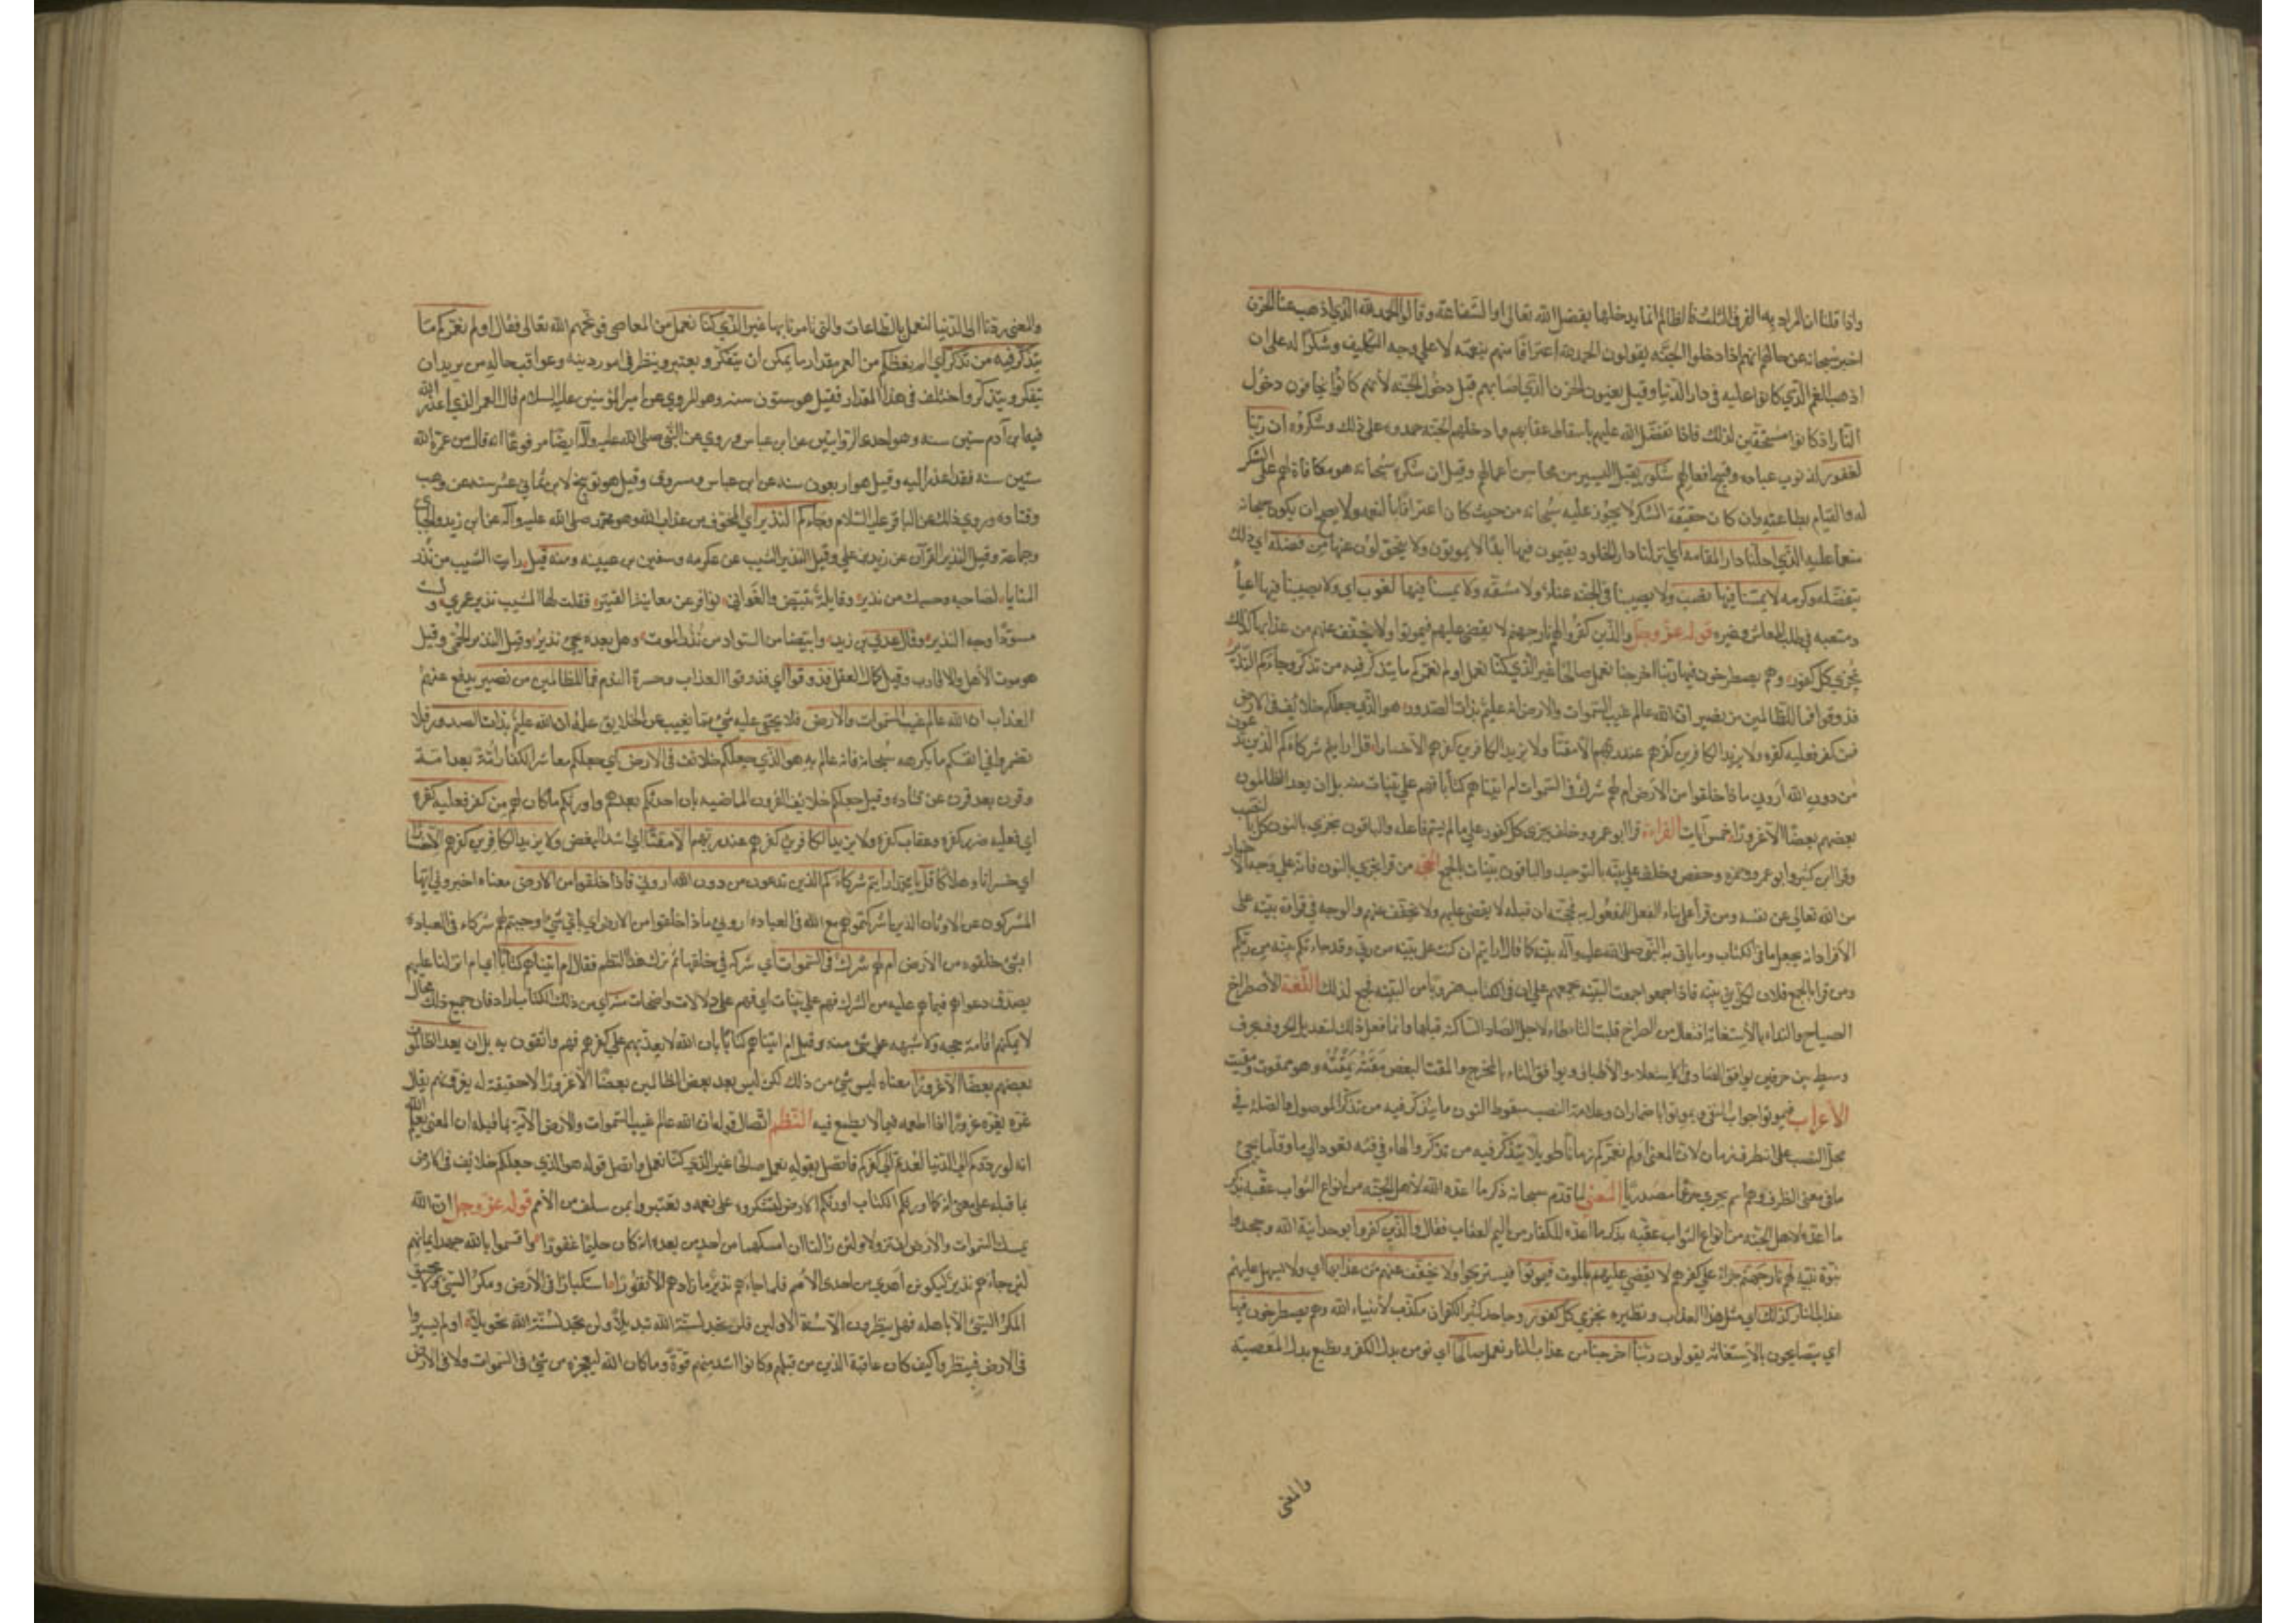 واذا قلنا ان المراد به الفرق الثلث فان الظالم انما يدخلها بفضل الله تعالى او الشفاعة وقالوا الحمد لله الذي اذهب عنا الحزن
اخبر سبحانه عن حالهم انهم اذا دخلوا الجنه يقولون الحمد لله اعترافا منهم بنعمته لا على وجه التكليف وشكرا له على ان
اذهب الغم الذي كانوا عليه في دار الدنيا وقيل يعنون الحزن الذي اصابهم قبل دخول الجنه لأنهم كانوا يخافون دخول
النار اذ كانوا مستحقين لذلك فاذا تفضل الله عليهم باسقاط عقابهم وادخلهم الجنه حمدوه على ذلك وشكروه ان ربنا
لغفور لذنوب عباده وقبيح افعالهم شكور يقبل اليسير من محاسن اعمالهم وقيل ان شكره سبحانه هو مكافاة لهم على الشكر
له والقيام بطاعته وان كان حقيقة الشكر لا يجوز عليه سبحانه من حيث كان اعترافا بالنعمه ولا يصح ان يكون سبحانه
منعما عليه الذي احلنا دار المقامه اي انزلنا دار الخلود يقيمون فيها ابدا لا يموتون ولا يتحولون عنها من فضله اي ذلك
بتفضله وكرمه لا يمسنا فيها نصب ولا يصيبنا في الجنه عناء ولا مشقه ولا يمسنا فيها لغوب اي ولا يصيبنا فيها اعياء
ومتعبه في طلب المعاش وغيره قوله عز وجل والذين كفروا لهم نار جهنم لا يقضى عليهم فيموتوا ولا يخفف عنهم من عذابها كذلك
نجزي كل كفور وهم يصطرخون فيها ربنا اخرجنا نعمل صالحا غير الذي كنا نعمل اولم نعمركم ما يتذكر فيه من تذكر وجاءكم النذير
فذوقوا فما للظالمين من نصير ان الله عالم غيب السموات والارض انه عليم بذات الصدور هو الذي جعلكم خلائف في الارض
فمن كفر فعليه كفره ولا يزيد الكافرين كفرهم عند ربهم الا مقتا ولا يزيد الكافرين كفرهم الا خسارا قل ارايتم شركاءكم الذين تدعون
من دون الله اروني ماذا خلقوا من الارض ام لهم شرك في السموات ام اتيناهم كتابا فهم على بينات منه بل ان يعد الظالمون
بعضهم بعضا الا غرورا خمس آيات القراءة قرا ابو عمرو وحده يجزى كل كفور على ما لم يسم فاعله والباقون نجزي بالنون كل بالنصب
وقرا ابن كثير وابو عمرو وحمزه وحفص وخلف على بينه بالتوحيد والباقون بينات بالجمع الحجه من قرا نجزي بالنون فانه على وجه الاخبار
من الله تعالى عن نفسه ومن قرأ على بناء الفعل للمفعول به فحجته ان قبله لا يقضى عليهم ولا يخفف عنهم والوجه في قراءة بينه على
الافراد انه يجعل ما في الكتاب وما ياتي به النبي صلى الله عليه وآله بينة كما قال ارايتم ان كنت على بينه من ربي وقد جاءتكم بينه من ربكم
ومن قرا بالجمع فلان لكل نبي بينه فاذا اجمعوا اجمعت البينه بجمعهم على ان في الكتاب ضروبا من البينه فجمع لذلك اللغة الاصطراخ
الصياح والنداء بالاستغاثة افتعال من الصراخ قلبت التاء طاء لاجل الصاد الساكنه قبلها وانما فعل ذلك لتعديل الحروف بحرف
وسيط بين حرفين يوافق الصاد في الاستعلاء والاطباق ويوافق التاء بالمخرج والمقت البغض مقته يمقته وهو ممقوت ومقيت
الاعراب فيموتوا جواب النفي ويموتوا باضمار ان وعلامة النصب سقوط النون ما يتذكر فيه من تذكر الموصول والصلة في
محل النصب على انه ظرف زمان لان المعنى اولم نعمركم زمانا طويلا يتذكر فيه من تذكر والهاء في فيه تعود الى ما وقلما يجئ
ما في معنى الظرف وهو اسم يجري حرفا مصدريا المعنى لما قدم سبحانه ذكر ما اعده الله لأهل الجنه من انواع الثواب عقبه بذكر
ما اعده لاهل الجنه من انواع الثواب عقبه بذكر ما اعده للكفار من اليم العقاب فقال والذين كفروا بوحدانية الله وجحدوا
نبوة نبيه لهم نار جهنم جزاء على كفرهم لا يقضى عليهم بالموت فيموتوا فيستريحوا ولا يخفف عنهم من عذابها اي ولا يسهل عليهم
عذاب النار كذلك اي مثل هذا العذاب ونظيره نجزي كل كفور وجاحد كثير الكفران مكذب لأنبياء الله وهم يصطرخون فيها
اي يتصايحون بالاستغاثه يقولون ربنا اخرجنا من عذاب النار نعمل صالحا اي نؤمن بدل الكفر ونطيع بدل المعصيه
والمعنى
والمعنى ردنا الى الدنيا لنعمل بالطاعات والتي تامرنا بها غير الذي كنا نعمل من المعاصي فوبخهم الله تعالى فقال اولم نعمركم ما
يتذكر فيه من تذكر اي الم نعطكم من العمر مقدار ما يمكن ان يتفكر ويعتبر وينظر في امور دينه وعواقب حاله من يريد ان
يتفكر ويتذكر واختلف في هذا المقدار فقيل هو ستون سنه وهو المروي عن امير المؤمنين عليه السلام قال العمر الذي اعذر الله
فيه ابن آدم ستين سنه وهو احدى الروايتين عن ابن عباس وروي عن النبي صلى الله عليه وآله ايضا مرفوعا انه قال من عمره الله
ستين سنه فقد اعذر اليه وقيل هو اربعون سنه عن ابن عباس ومسروق وقيل هو توبيخ لابن ثماني عشر سنه عن وهب
وقتاده وروي ذلك عن الباقر عليه السلام وجاءكم النذير اي المخوف من عذاب الله وهو محمد صلى الله عليه وآله عن ابن زيد والجبائي
وجماعة وقيل النذير القرآن عن زيد بن علي وقيل النذير الشيب عن عكرمه وسفين بن عيينه ومنه قيل رايت الشيب من نذر
المنايا لصاحبه وحسبك من نذير وقايلة تبيض والغواني نوافر عن معاينة القتير فقلت لها المشيب نذير عمري ولست
مسودا وجه النذير وقال عدي بن زيد وابيضاض السواد من نذر الموت وهل بعده يجئ نذير وقيل النذير الحمى وقيل
هو موت الأهل والاقارب وقيل كمال العقل فذوقوا اي فذوقوا العذاب وحسرة الندم فما للظالمين من نصير يدفع عنهم
العذاب ان الله عالم غيب السموات والارض فلا يخفى عليه شئ مما يغيب عن الخلايق علمه ان الله عليم بذات الصدور فلا
تضمروا في انفسكم ما يكرهه سبحانه فانه عالم به هو الذي جعلكم خلائف في الارض اي جعلكم معاشر الكفار امة بعد امة
وقرن بعد قرن عن قتاده وقيل جعلكم خلائف القرون الماضيه بان احدثكم بعدهم واورثكم ما كان لهم من كفر فعليه كفره
اي فعليه ضرر كفره وعقاب كفره ولا يزيد الكافرين كفرهم عند ربهم الا مقتا اي اشد البغض ولا يزيد الكافرين كفرهم الا خسارا
اي خسرانا وهلاكا قل يا محمد ارايتم شركاءكم الذين تدعون من دون الله اروني ماذا خلقوا من الارض معناه اخبروني ايها
المشركون عن الاوثان الذين اشركتموهم مع الله في العبادة اروني ماذا خلقوا من الارض اي باي شئ اوجبتم لهم شركاء في العباده
ابشئ خلقوه من الأرض ام لهم شرك في السموات اي شركه في خلقها ثم ترك هذا النظم فقال ام اتيناهم كتابا اي ام انزلنا عليهم
يصدق دعواهم فيما هم عليه من الشرك فهم على بينات اي فهم على دلالات واضحات منه اي من ذلك الكتاب اراد فان جميع ذلك محال
لا يمكنهم اقامة حجه ولا شبهه على شئ منه وقيل ام اتيناهم كتابا بان الله لا يعذبهم على كفرهم فهم واثقون به بل ان يعد الظالمون
بعضهم بعضا الا غرورا معناه ليس شئ من ذلك لكن ليس يعد بعض الظالمين بعضا الا غرورا لا حقيقة له يغرونهم يقال
غره يغره غرورا اذا اطمعه فيما لا يطمع فيه النظم اتصال قوله ان الله عالم غيب السموات والارض الآية بما قبله ان المعنى يعلم الله
انه لو ردكم الى الدنيا لعدتم الى كفركم فاتصل بقوله نعمل صالحا غير الذي كنا نعمل واتصل قوله هو الذي جعلكم خلائف في الارض
بما قبله على معنى انه كما اورثكم الكتاب اورثكم الارض لتشكروه على نعمه وتعتبروا بمن سلف من الأمم قوله عز وجل ان الله
يمسك السموات والأرض ان تزولا ولئن زالتا ان امسكهما من احد من بعده انه كان حليما غفورا واقسموا بالله جهد ايمانهم
لئن جاءهم نذير ليكونن اهدى من احدى الأمم فلما جاءهم نذير ما زادهم الا نفورا استكبارا في الأرض ومكر السيئ ولا يحيق
المكر السيئ الا باهله فهل ينظرون الا سنة الاولين فلن تجد لسنة الله تبديلا ولن تجد لسنة الله تحويلا اولم يسيروا
في الارض فينظروا كيف كان عاقبة الذين من قبلهم وكانوا اشد منهم قوة وما كان الله ليعجزه من شئ في السموات ولا في الارض